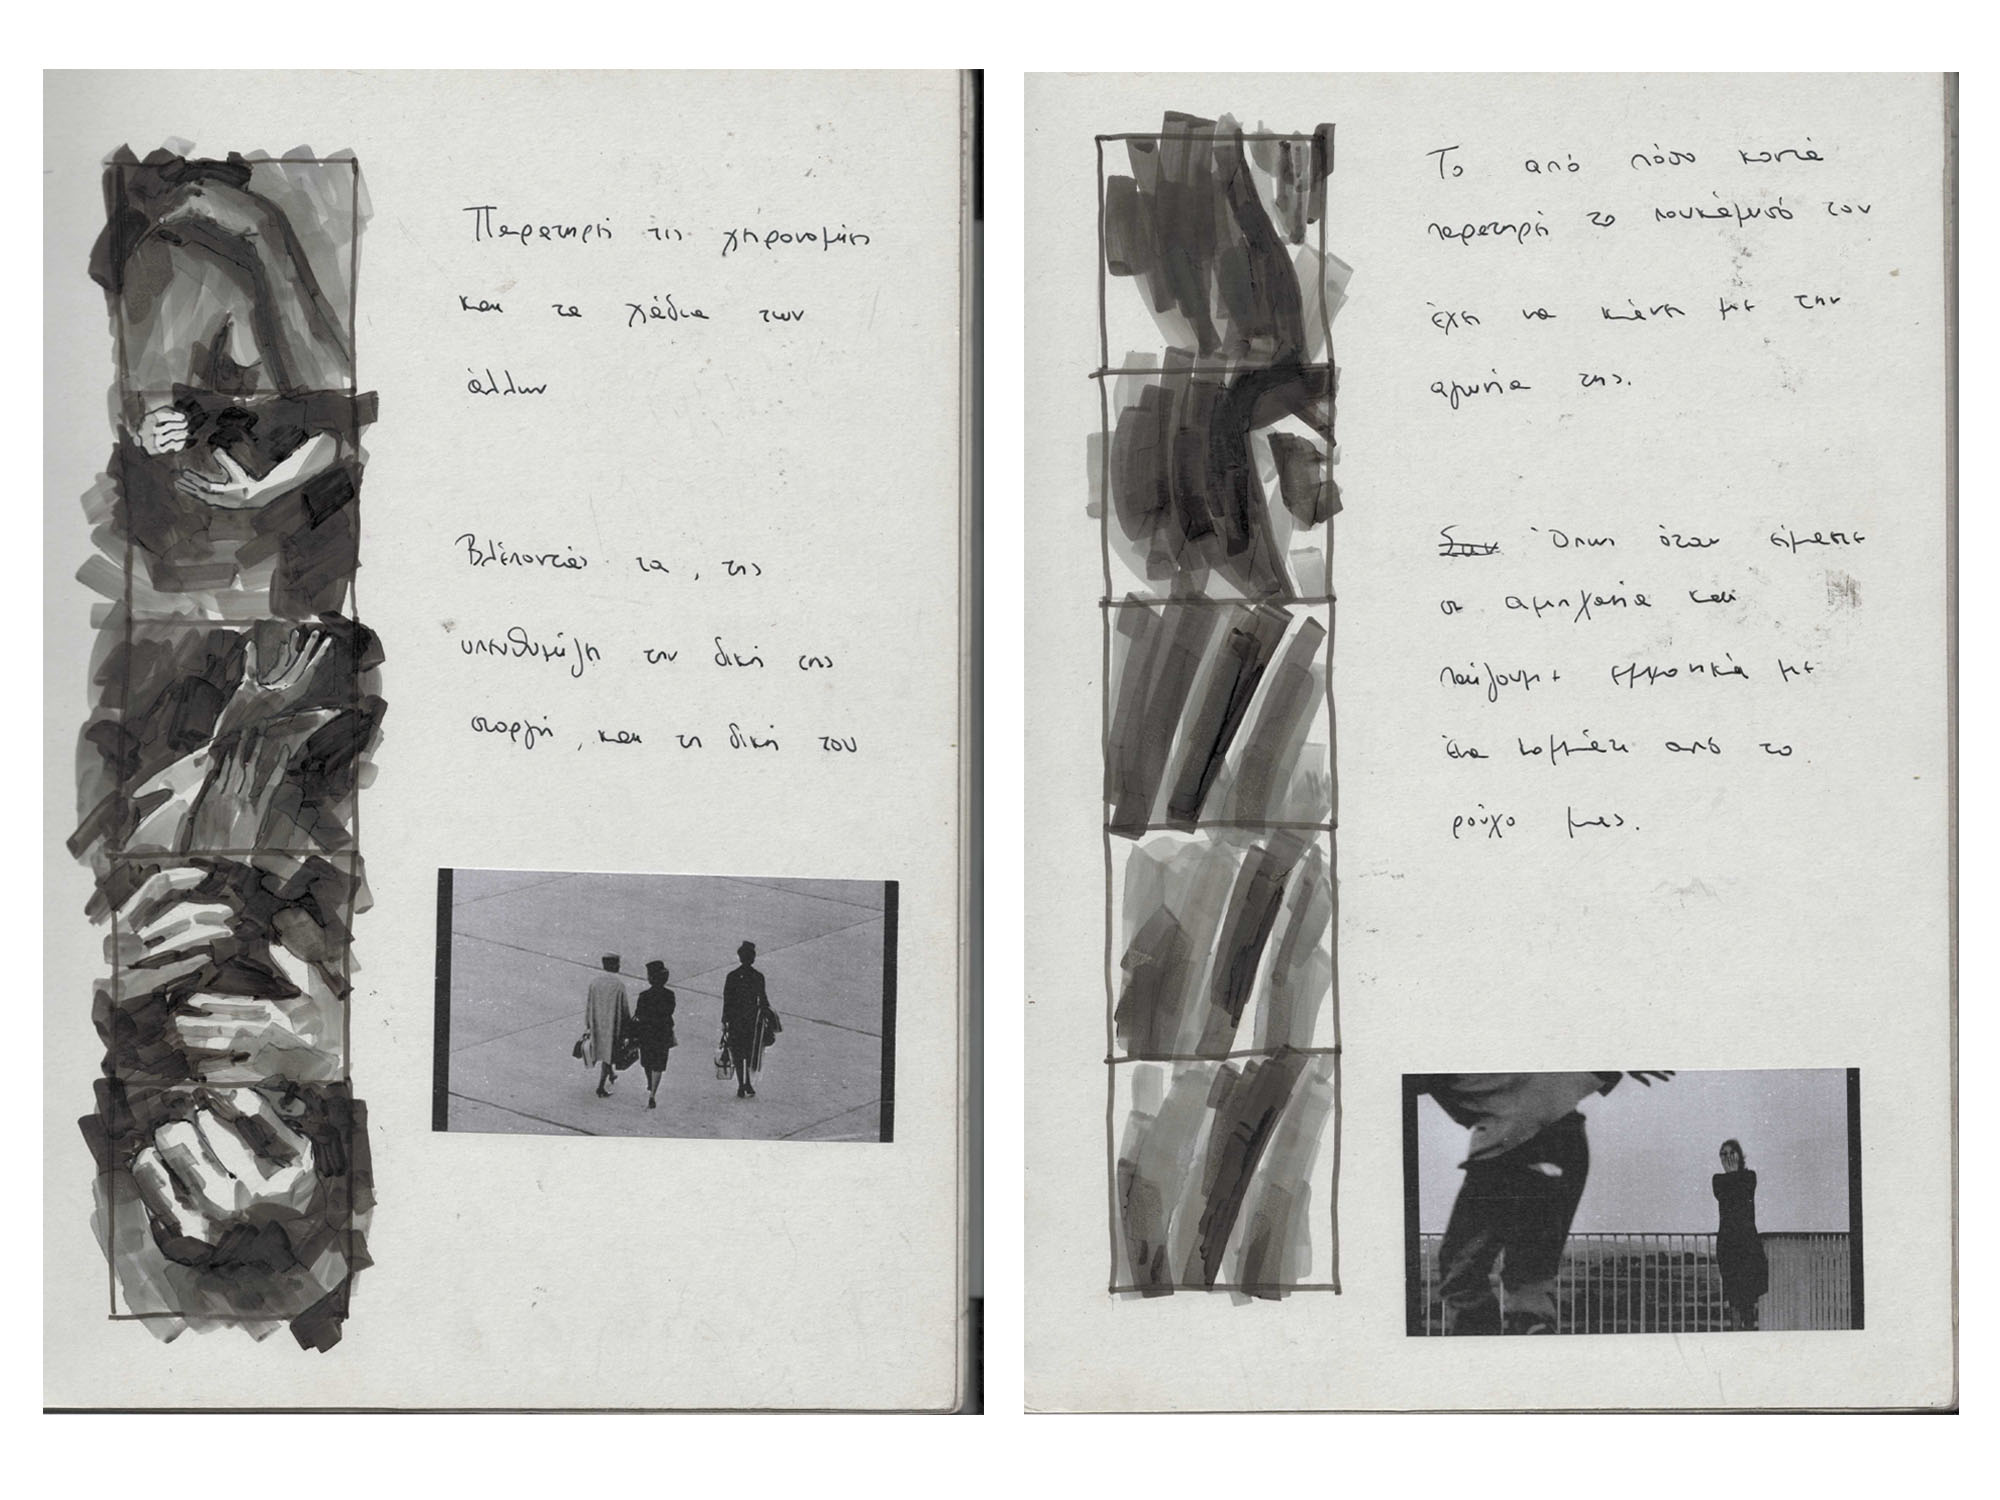 Παρατηρεί τις χειρονομίες
και τα χάδια των
άλλων
Βλέποντάς τα, της
υπενθυμίζει την δική της
στοργή, και τη δική του
Το από πόσο κοντά
παρατηρεί το πουκάμισό του
έχει να κάνει με την
αγωνία της.
Σαν Όπως όταν είμαστε
σε αμηχανία και
παίζουμε εμμονικά με
ένα κομμάτι από το
ρούχο μας.